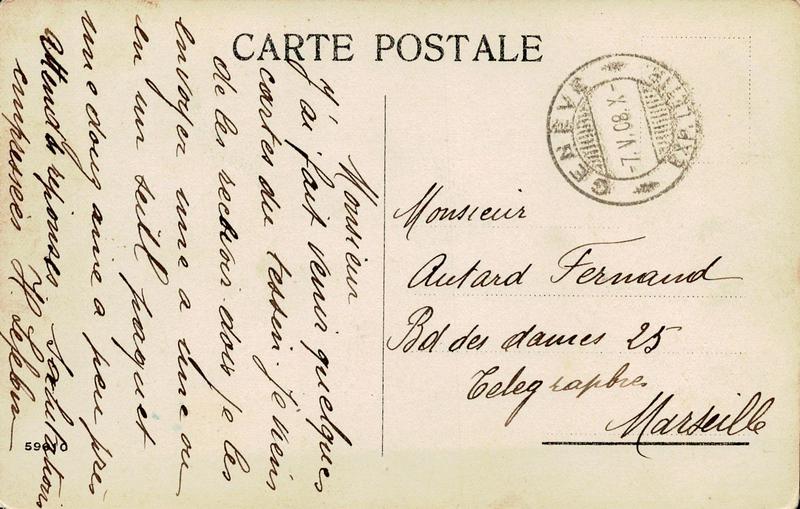 CARTE POSTALE
GENEVE
EXP. LETTR.
7.V.08.X-
Monsieur
Autard Fernand
Bd des dames 25
Telegraphes
Marseille
Monsieur
J'ai fait venir quelques
cartes du tessin. Je viens
de les recevoir dois je les
envoyer une a une ou
en un seul paquet
une douzaine a peu près
Attends réponses Salutations
empressées
59610